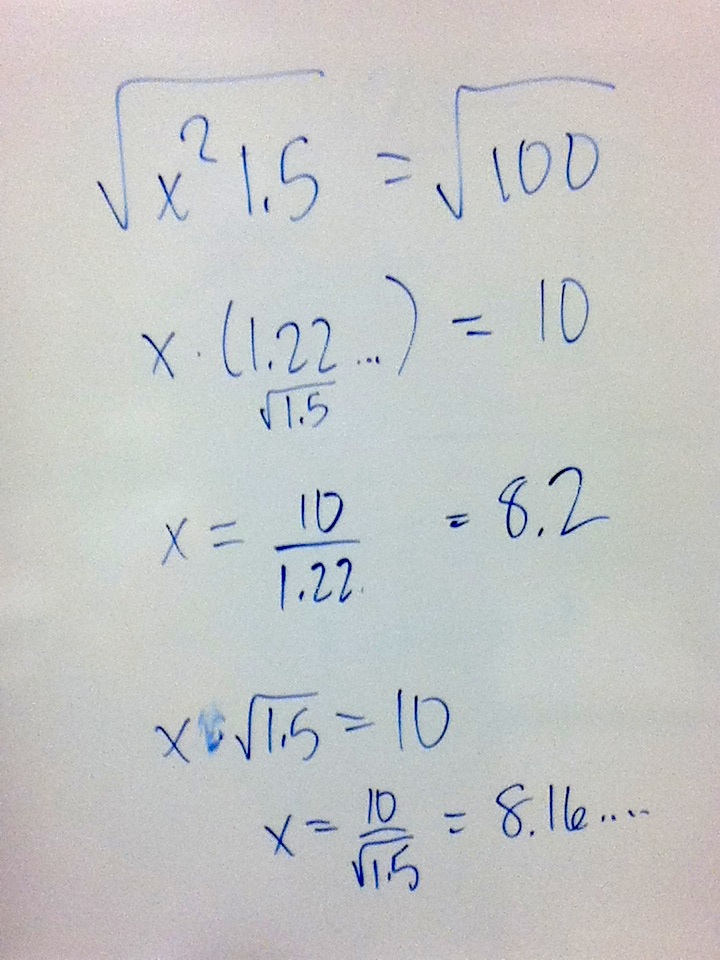 √x²1.5 = √100
x · (1.22...) = 10
√1.5
x = 10/1.22 = 8.2
x √1.5 = 10
x = 10/√1.5 = 8.16....